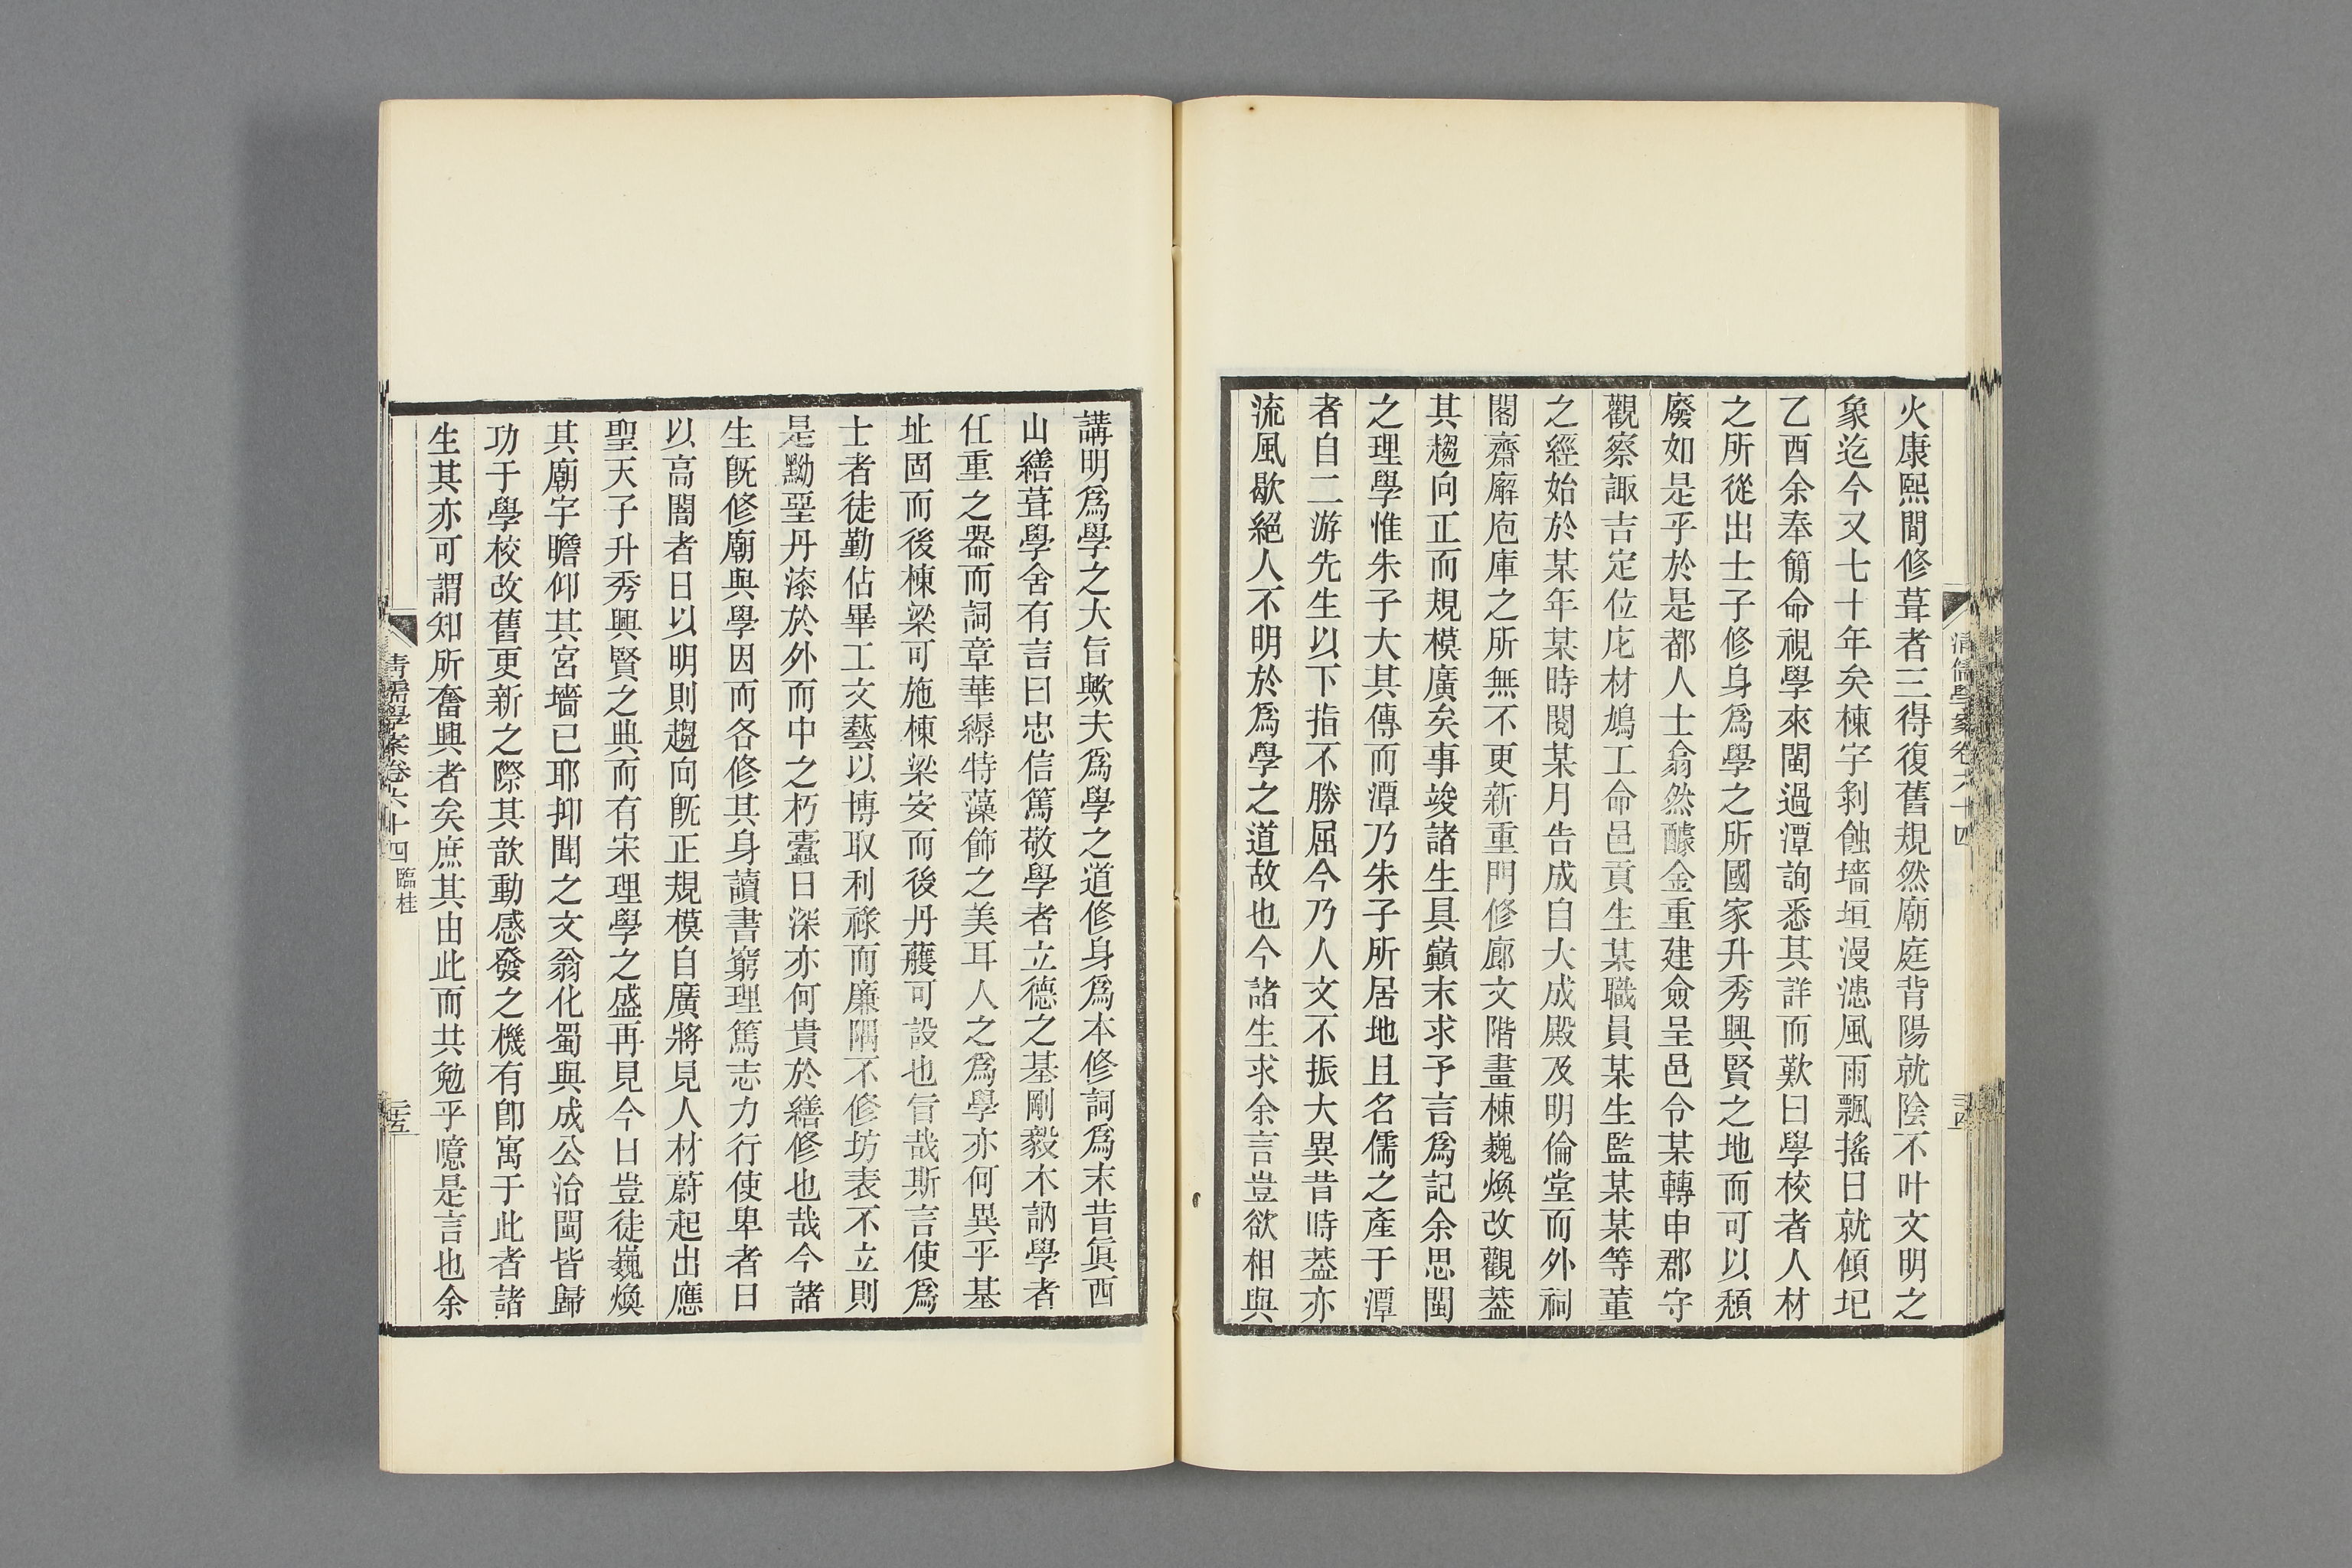 火康熙間修葺者三得復舊規然廟庭背陽就陰不叶文明之
象迄今又七十年矣棟宇剝蝕墻垣漫漶風雨飄搖日就傾圮
乙酉余奉簡命視學來閩過潭詢悉其詳而歎曰學校者人材
之所從出士子修身爲學之所國家升秀興賢之地而可以頹
廢如是乎於是都人士翕然醵金重建僉呈邑令某轉申郡守
觀察諏吉定位庀材鳩工命邑貢生某職員某生監某某等董
之經始於某年某時閱某月告成自大成殿及明倫堂而外祠
閣齋廨庖庫之所無不更新重門修廊文階畫棟巍煥改觀蓋
其趨向正而規模廣矣事竣諸生具巔末求予言爲記余思閩
之理學惟朱子大其傳而潭乃朱子所居地且名儒之產于潭
者自二游先生以下指不勝屈今乃人文不振大異昔時蓋亦
流風歇絕人不明於爲學之道故也今諸生求余言豈欲相與
清儒學案卷六十四
三四
講明爲學之大旨歟夫爲學之道修身爲本修詞爲末昔眞西
山繕葺學舍有言曰忠信篤敬學者立德之基剛毅木訥學者
任重之器而詞章華縟特藻飾之美耳人之爲學亦何異乎基
址固而後棟梁可施棟梁安而後丹雘可設也旨哉斯言使爲
士者徒勤佔畢工文藝以博取利祿而廉隅不修坊表不立則
是黝堊丹漆於外而中之朽蠹日深亦何貴於繕修也哉今諸
生旣修廟與學因而各修其身讀書窮理篤志力行使卑者日
以高闇者日以明則趨向旣正規模自廣將見人材蔚起出應
聖天子升秀興賢之典而有宋理學之盛再見今日豈徒巍煥
其廟宇瞻仰其宮墻已耶抑聞之文翁化蜀與成公治閩皆歸
功于學校改舊更新之際其歆動感發之機有卽寓于此者諸
生其亦可謂知所奮興者矣庶其由此而共勉乎噫是言也余
清儒學案卷六十四 臨桂
三五